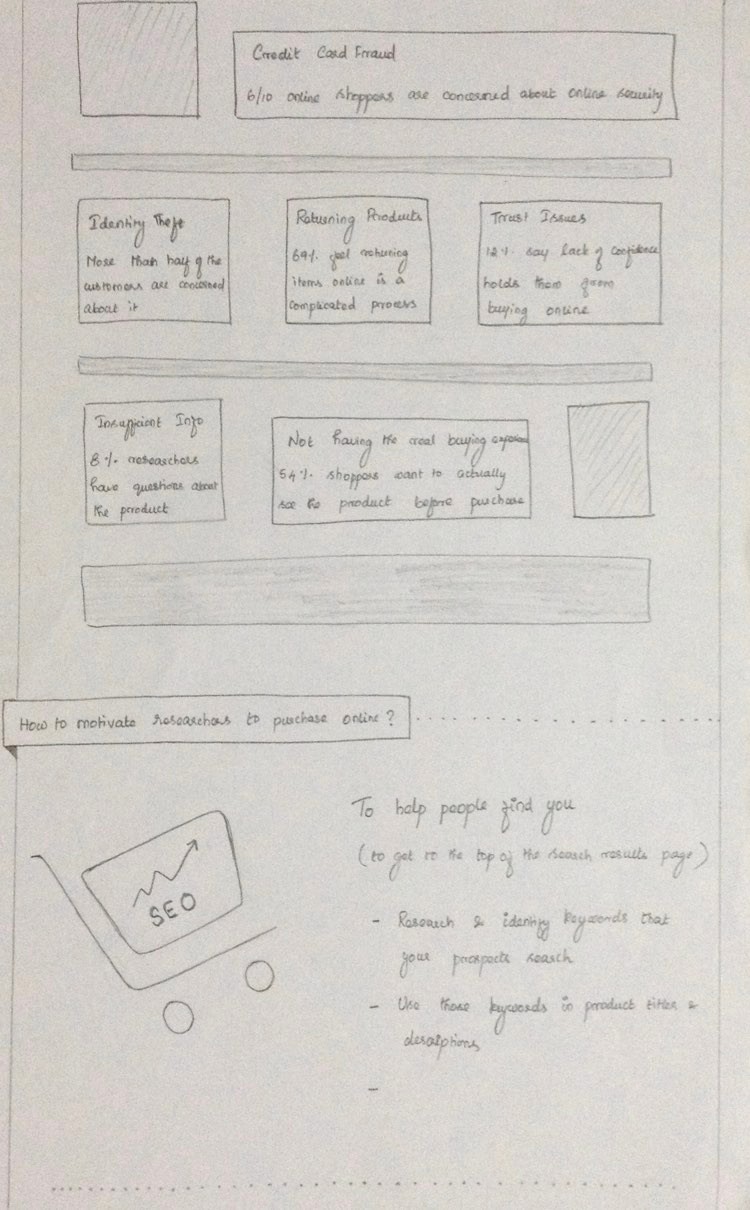 Credit Card Fraud
6/10 online shoppers are concerned about online security
Identity Theft
More than half of the
customers are concerned
about it
Returning Products
69% feel returing
items online is a
complicated process
Trust Issues
12% say lack of confidence
holds them from
buying online
Insufficient Info
8% researchers
have questions about
the product
Not having the real buying experience
54% shoppers want to actually
see the product before purchase
How to motivate researchers to purchase online?
SEO
To help people find you
(to get to the top of the search results page)
- Research & identify keywords that
your prospects search
- Use those keywords in product titles &
descriptions
-